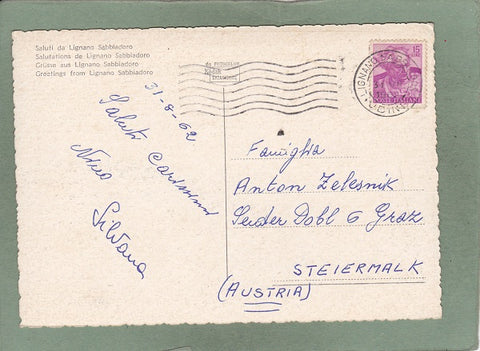 Saluti da Lignano Sabbiadoro
Salutations de Lignano Sabbiadoro
Grüsse aus Lignano Sabbiadoro
Greetings from Lignano Sabbiadoro
31-8-62
Saluti Carissimi
Nino
Silvana
15
POSTE ITALIANE
LIGNANO SABB
UDINE
Famiglia
Anton Zelesnik
Seder Dobl 6 Graz
STEIERMALK
(AUSTRIA)